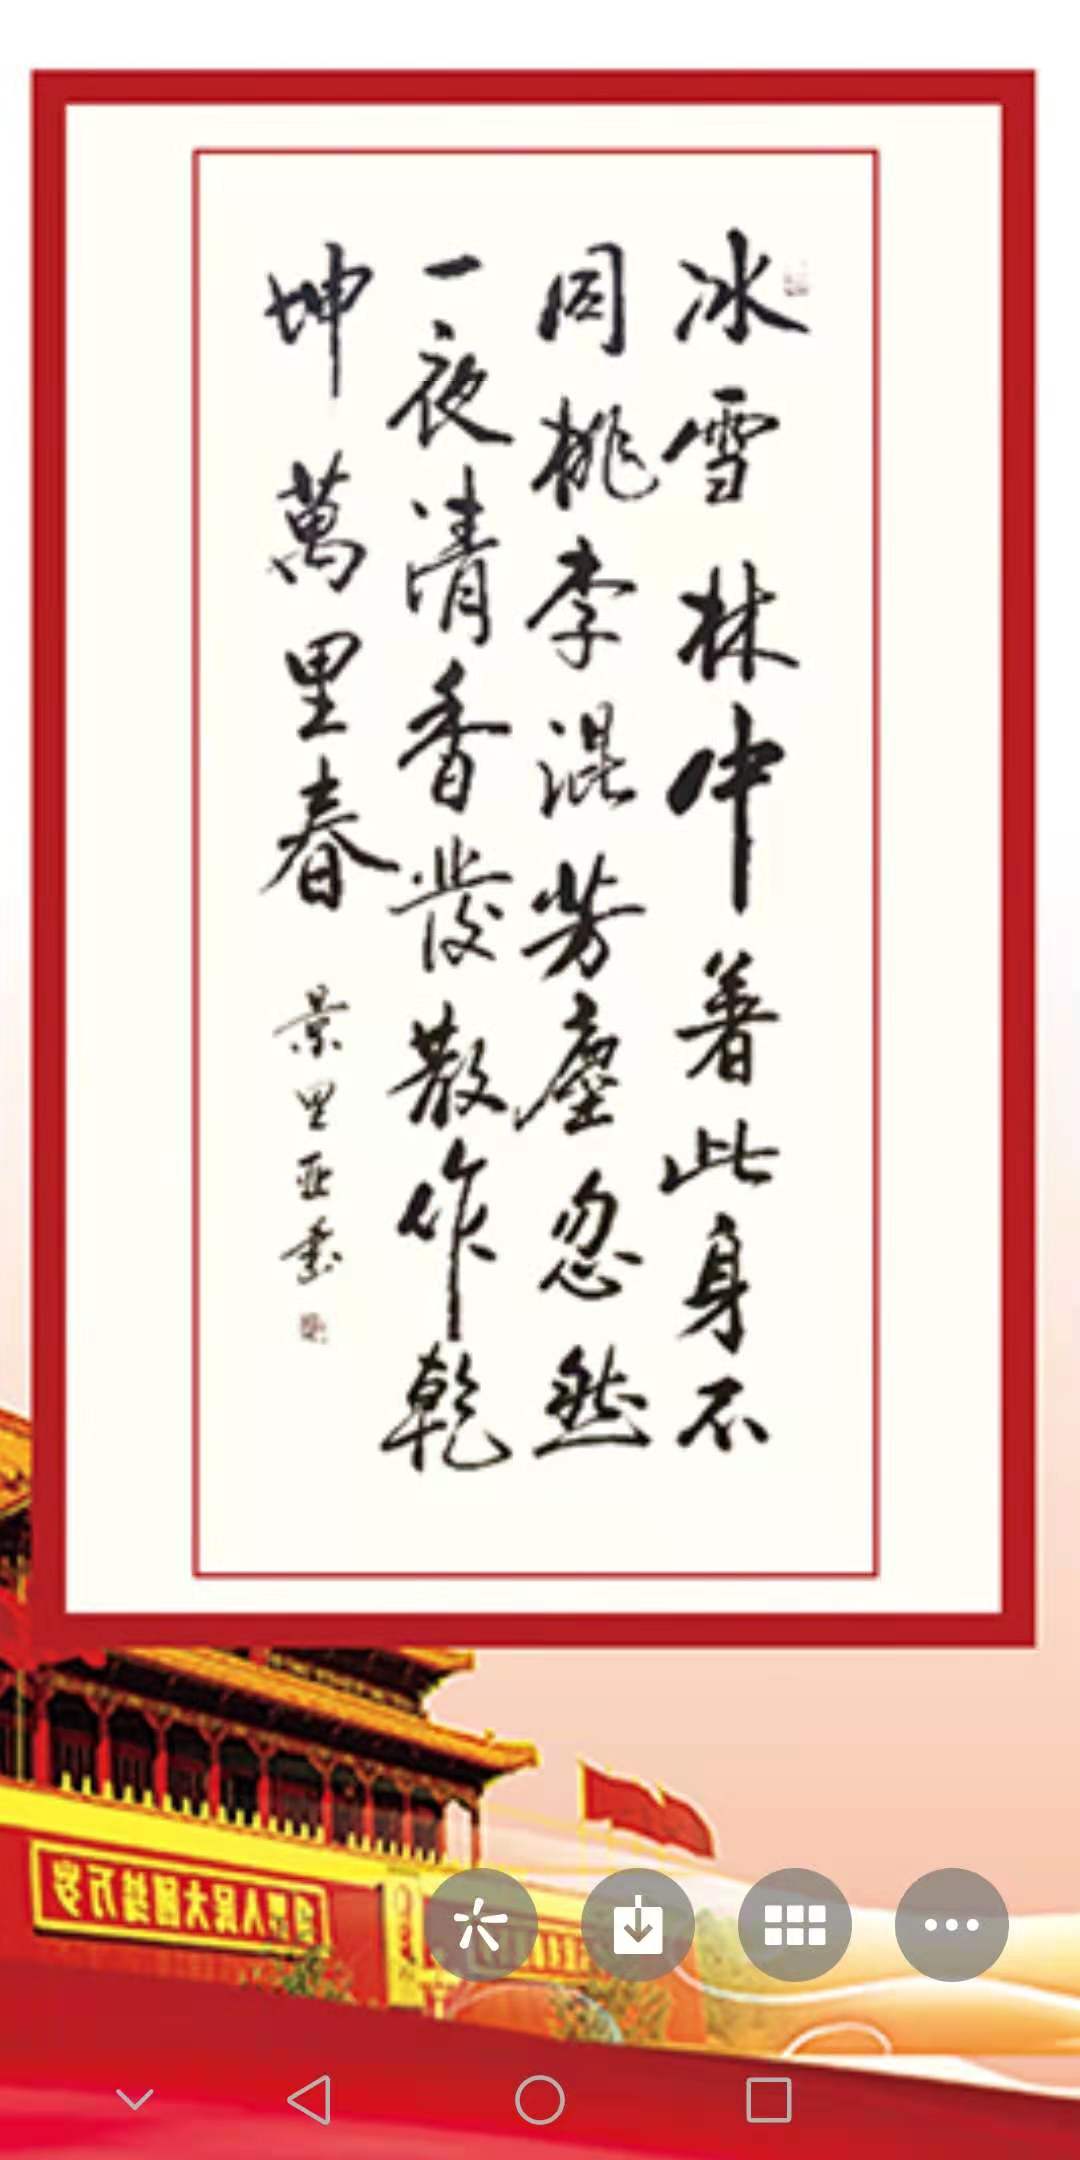 冰雪林中著此身不
同桃李混芳塵忽然
一夜清香發散作乾
坤萬里春
景里亚書
人民大團结万岁